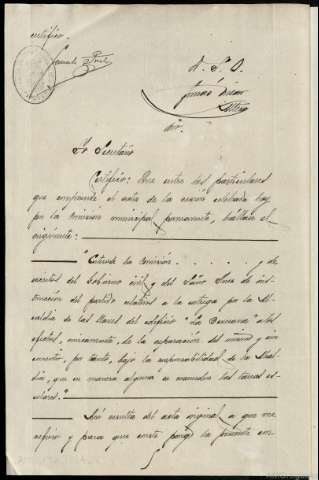 certifico.
A. S. O.
El Secretario
Certifico: Que entre los particulares
que comprende el acta de la sesión celebrada hoy
por la Comisión municipal permanente, hállase el
siguiente:
"Enterada la Comisión . . . . . . . y de
escritos del Gobierno civil y del Señor Juez de ins-
trucción del partido relativos a la entrega por la Al-
caldía de las llaves del edificio "La
efectos, únicamente, de la reparación del mismo y sin
bajo la responsabilidad de la Alcal-
día, que en manera alguna se reanuden las tareas es-
colares."
Así resulta del acta original a que me
refiero y para que conste pongo la presente con-